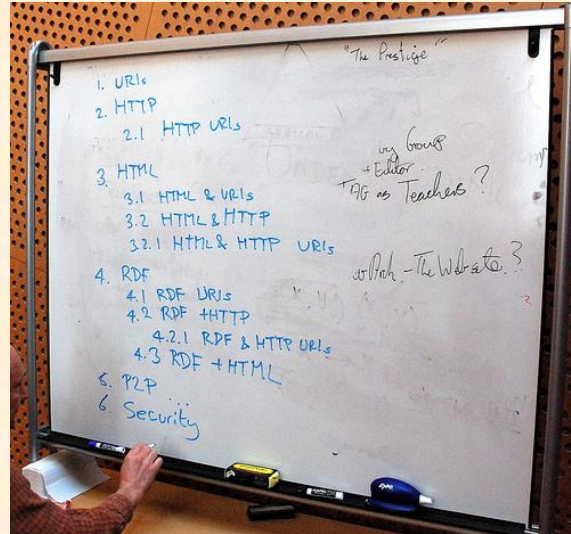 1. URIs
2. HTTP
2.1 HTTP URIs
3. HTML
3.1 HTML & URIs
3.2 HTML & HTTP
3.2.1 HTML & HTTP URIs
4. RDF
4.1 RDF URIs
4.2 RDF + HTTP
4.2.1 RDF & HTTP URIs
4.3 RDF + HTML
5. P2P
6. Security
"The Prestige"
Group
+ Editor
TAG as Teachers?
- The Website?
EXPO